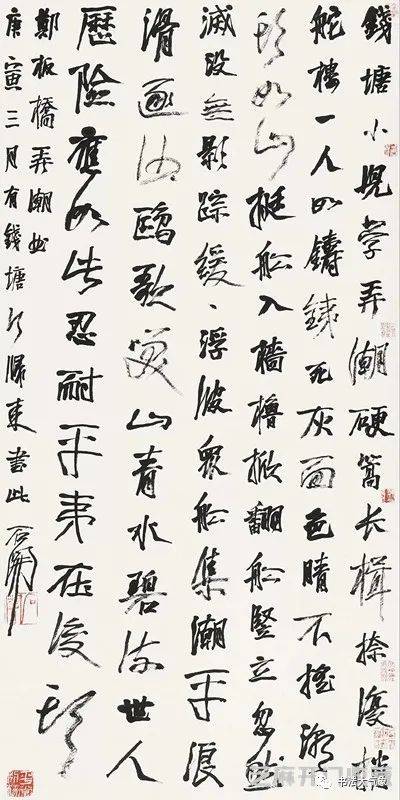 錢塘小児學弄潮硬篙长楫捺復捎
舵樓一人如鑄鐵死灰面色睛不搖潮
頭如山挺船入檣櫓掀翻船豎立忽然
滅没無影踪緩、浮波眾船集潮平浪
滑逐沙鷗歌笑山青水碧流世人
歷險應如此忍耐平夷在後頭
鄭板橋弄潮曲
庚寅三月有錢塘行歸來書此 石開
书法大气象